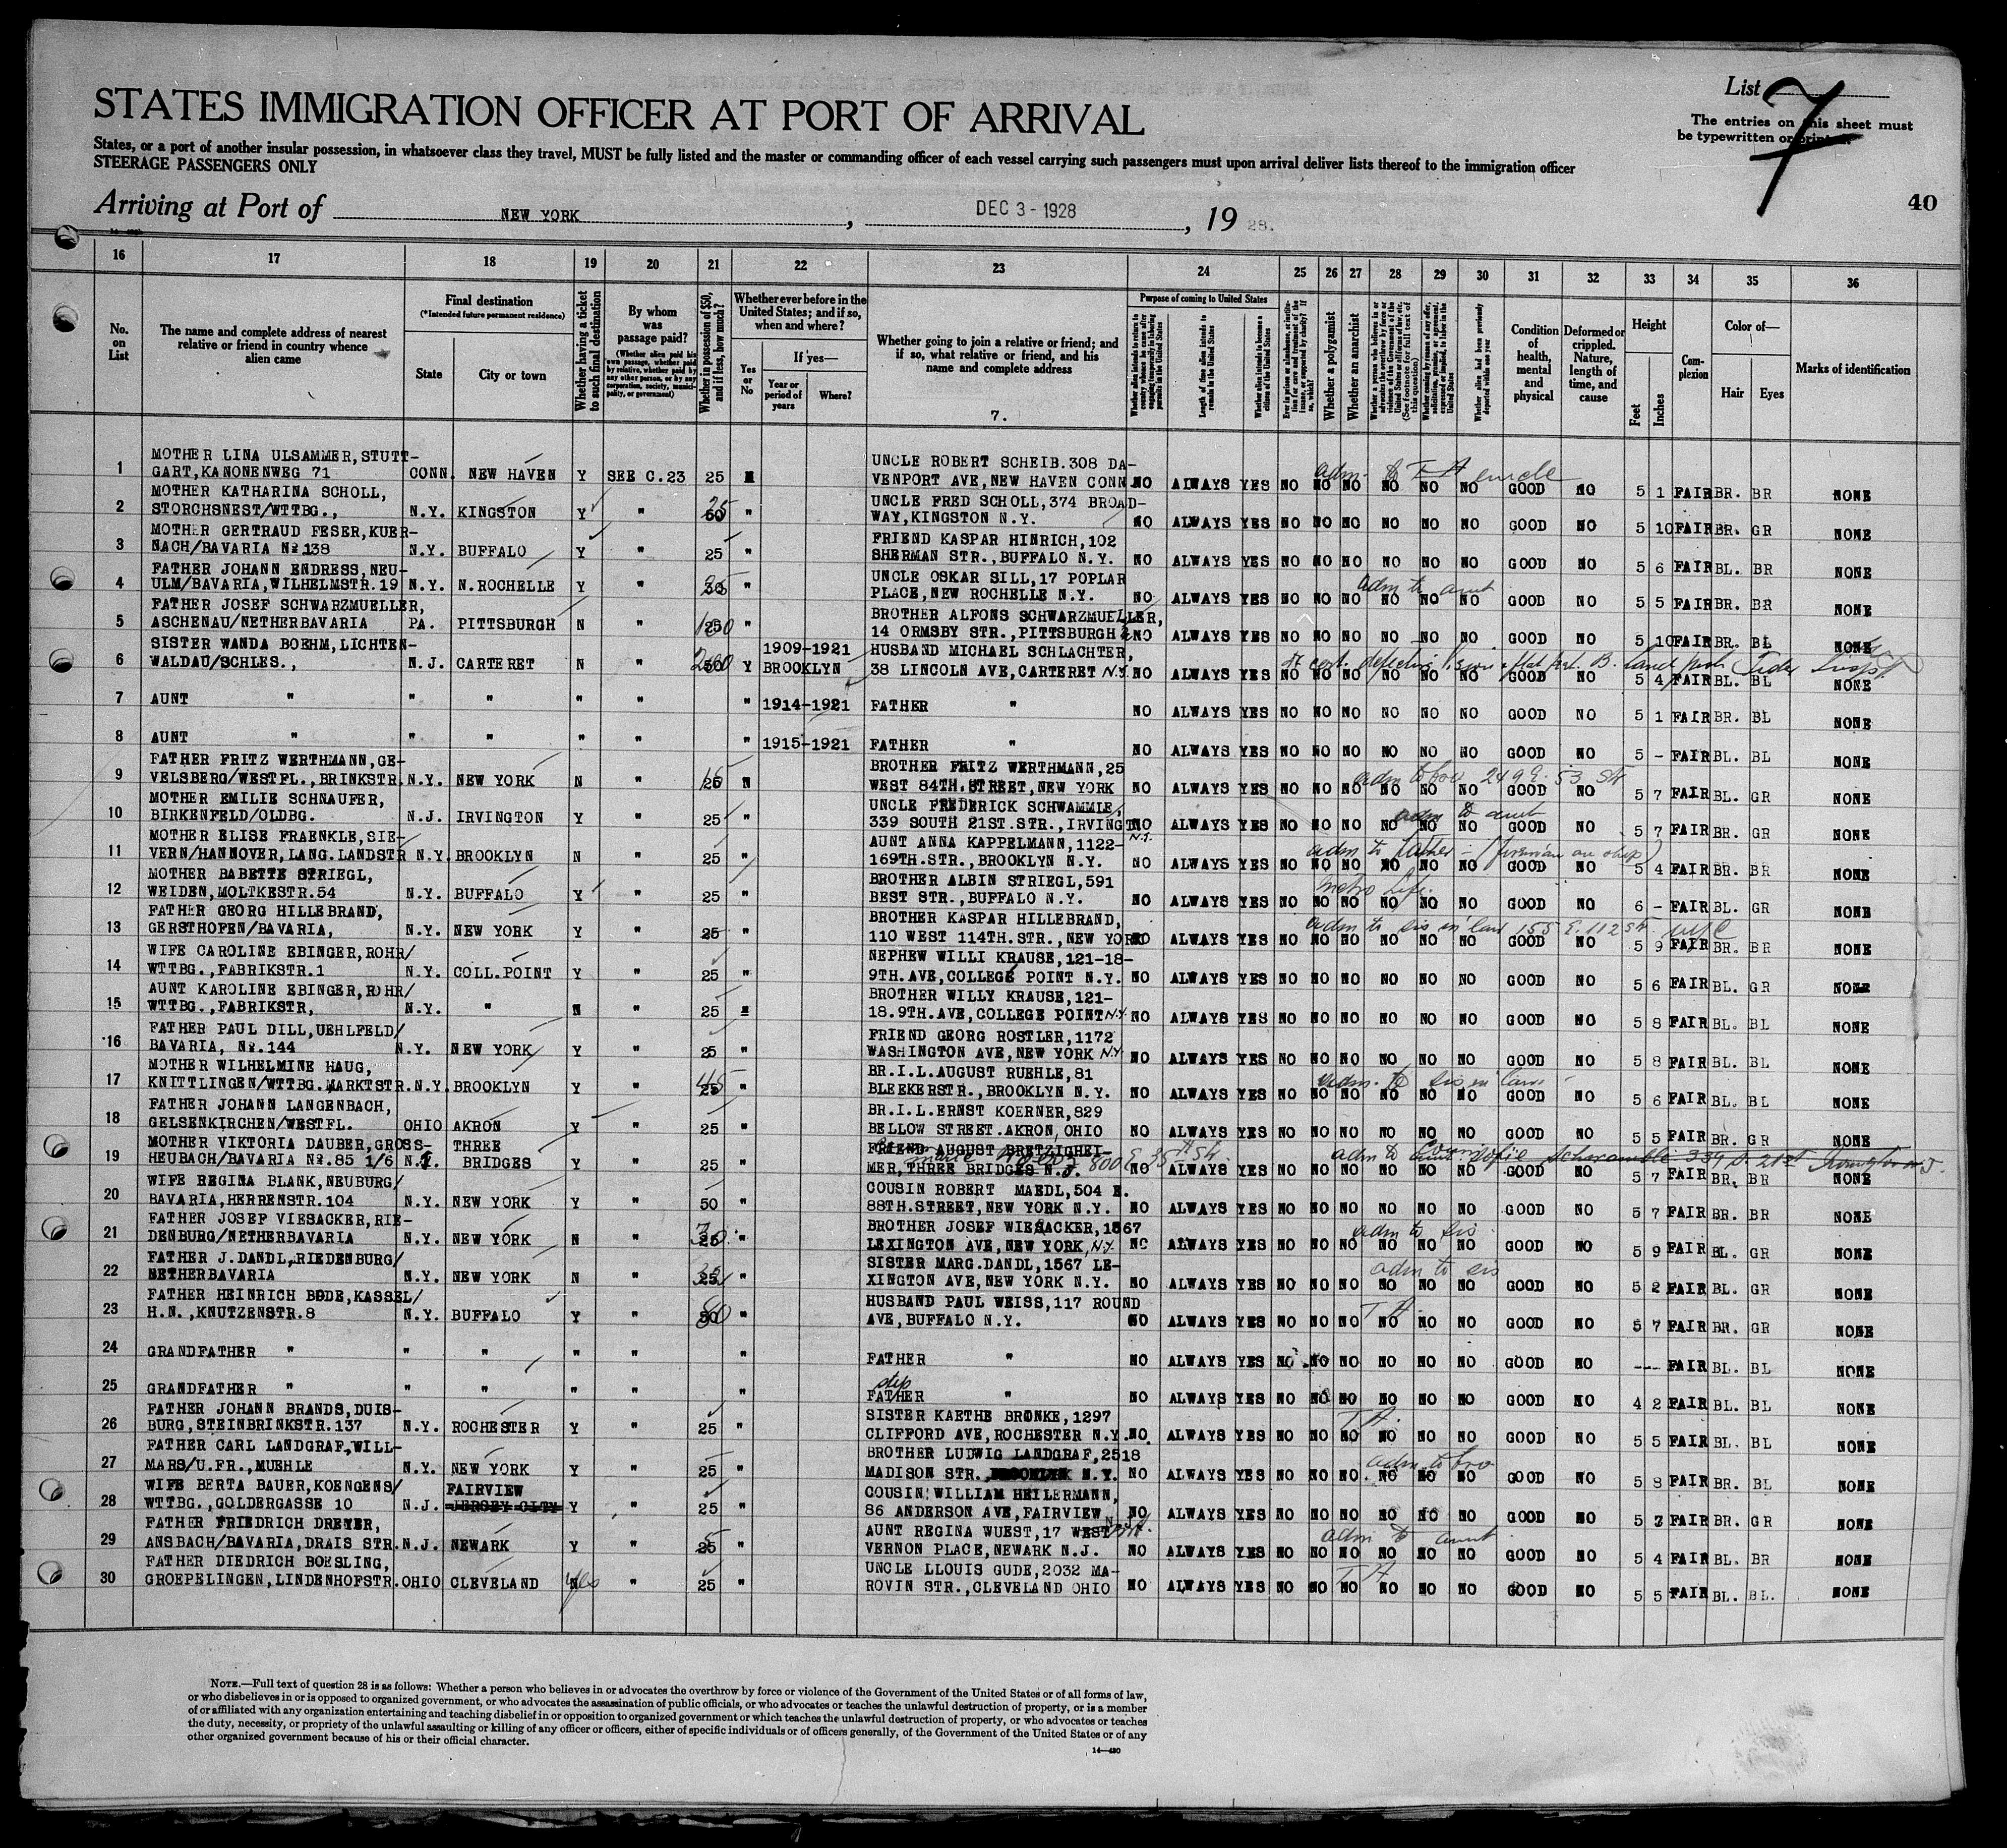 List 7
STATES IMMIGRATION OFFICER AT PORT OF ARRIVAL
The entries on this sheet must
be typewritten or printed.
States, or a port of another insular possession, in whatsoever class they travel, MUST be fully listed and the master or commanding officer of each vessel carrying such passengers must upon arrival deliver lists thereof to the immigration officer
STEERAGE PASSENGERS ONLY
Arriving at Port of NEW YORK, DEC 3 - 1928, 19 28.
40
16 17 18 19 20 21 22 23 24 25 26 27 28 29 30 31 32 33 34 35 36
No. on List
The name and complete address of nearest relative or friend in country whence alien came
Final destination
(*Intended future permanent residence)
State
City or town
Whether having a ticket to such final destination
By whom was passage paid?
(Whether alien paid his own passage, whether paid by relative, whether paid by any other person, or by any corporation, society, municipality, or government)
Whether in possession of $50, and if less, how much?
Whether ever before in the United States; and if so, when and where?
Yes or No
If yes—
Year or period of years
Where?
Whether going to join a relative or friend; and if so, what relative or friend, and his name and complete address
7.
Purpose of coming to United States
Length of time alien intends to remain in the United States
Whether alien intends to become a citizen of the United States
Whether a polygamist
Whether an anarchist
Whether alien had been previously deported within one year
Condition of health, mental and physical
Deformed or crippled. Nature, length of time, and cause
Height
Feet
Inches
Complexion
Color of—
Hair
Eyes
Marks of identification
MOTHER LINA ULSAMMER, STUTT- UNCLE ROBERT SCHEIB.308 DA- adm. to uncle
1 GART,KANONENWEG 71 CONN. NEW HAVEN Y SEE C.23 25 VENPORT AVE,NEW HAVEN CONN. NO ALWAYS YES NO NO NO NO NO NO GOOD NO 5 1 FAIR BR. BR NONE
MOTHER KATHARINA SCHOLL, UNCLE FRED SCHOLL,374 BROAD-
2 STORCHSNEST/WTTBG., N.Y. KINGSTON Y " " WAY,KINGSTON N.Y. NO ALWAYS YES NO NO NO NO NO NO GOOD NO 5 10 FAIR BR. GR NONE
MOTHER GERTRAUD FESER,KUER- FRIEND KASPAR HINRICH,102
3 NACH/BAVARIA No.138 N.Y. BUFFALO Y " 25 " SHERMAN STR.,BUFFALO N.Y. NO ALWAYS YES NO NO NO NO NO NO GOOD NO 5 6 FAIR BL. BR NONE
FATHER JOHANN ENDRESS,NEU- UNCLE OSKAR SILL,17 POPLAR adm to aunt
4 ULM/BAVARIA,WILHELMSTR.19 N.Y. N.ROCHELLE Y " " PLACE,NEW ROCHELLE N.Y. NO ALWAYS YES NO NO NO NO NO NO GOOD NO 5 5 FAIR BR. BR NONE
FATHER JOSEF SCHWARZMUELLER, BROTHER ALFONS SCHWARZMUELLER,
5 ASCHENAU/NETHERBAVARIA PA. PITTSBURGH N " " 14 ORMSBY STR.,PITTSBURGH NO ALWAYS YES NO NO NO NO NO NO GOOD NO 5 10 FAIR BR. BL NONE
SISTER WANDA BOEHM,LICHTEN- 1909-1921 HUSBAND MICHAEL SCHLACHTER,
6 WALDAU/SCHLES., N.J. CARTERET N " Y BROOKLYN 38 LINCOLN AVE,CARTERET N.Y. NO ALWAYS YES NO NO NO NO NO NO GOOD NO 5 4 FAIR BL. BL NONE
7 AUNT " " " " " " 1914-1921 FATHER " NO ALWAYS YES NO NO NO NO NO NO GOOD NO 5 1 FAIR BR. BL NONE
8 AUNT " " " " " " 1915-1921 FATHER " NO ALWAYS YES NO NO NO NO NO NO GOOD NO 5 - FAIR BL. BL NONE
FATHER FRITZ WERTHMANN,GE- BROTHER FRITZ WERTHMANN,25 adm to bro 249 E. 53 St
9 VELSBERG/WESTFL.,BRINKSTR. N.Y. NEW YORK N " N WEST 84TH.STREET,NEW YORK NO ALWAYS YES NO NO NO NO NO NO GOOD NO 5 7 FAIR BL. GR NONE
MOTHER EMILIE SCHNAUFER, UNCLE FREDERICK SCHWAMMLE, adm to aunt
10 BIRKENFELD/OLDBG. N.J. IRVINGTON Y " 25 " 339 SOUTH 21ST.STR.,IRVINGT. N.J. NO ALWAYS YES NO NO NO NO NO NO GOOD NO 5 7 FAIR BR. GR NONE
MOTHER ELISE FRAENKLE,SIE- AUNT ANNA KAPPELMANN,1122- adm to father - (fireman on ship)
11 VERN/HANNOVER,LANG.LANDSTR N.Y. BROOKLYN N " 25 " 169TH.STR.,BROOKLYN N.Y. NO ALWAYS YES NO NO NO NO NO NO GOOD NO 5 4 FAIR BR. BR NONE
MOTHER BABETTE STRIEGL, BROTHER ALBIN STRIEGL,591
12 WEIDEN,MOLTKESTR.54 N.Y. BUFFALO Y " 25 " BEST STR.,BUFFALO N.Y. NO ALWAYS YES NO NO NO NO NO NO GOOD NO 6 - FAIR BL. GR NONE
FATHER GEORG HILLEBRAND, BROTHER KASPAR HILLEBRAND, adm to sis in law 155 E. 112 St. NYC
13 GERSTHOFEN/BAVARIA, N.Y. NEW YORK Y " 25 " 110 WEST 114TH.STR.,NEW YORK NO ALWAYS YES NO NO NO NO NO NO GOOD NO 5 9 FAIR BR. BR NONE
WIFE CAROLINE EBINGER,ROHR/ NEPHEW WILLI KRAUSE,121-18-
14 WTTBG.,FABRIKSTR.1 N.Y. COLL.POINT Y " 25 " 9TH.AVE,COLLEGE POINT N.Y. NO ALWAYS YES NO NO NO NO NO NO GOOD NO 5 6 FAIR BL. GR NONE
AUNT KAROLINE EBINGER,ROHR/ BROTHER WILLY KRAUSE,121-
15 WTTBG.,FABRIKSTR, N.Y. " N " 25 " 18.9TH.AVE,COLLEGE POINT N.Y. NO ALWAYS YES NO NO NO NO NO NO GOOD NO 5 8 FAIR BL. BL NONE
FATHER PAUL DILL,UEHLFELD/ FRIEND GEORG ROSTLER,1172
16 BAVARIA, No.144 N.Y. NEW YORK Y " 25 " WASHINGTON AVE,NEW YORK N.Y. NO ALWAYS YES NO NO NO NO NO NO GOOD NO 5 8 FAIR BL. BL NONE
MOTHER WILHELMINE HAUG, BR.I.L.AUGUST RUEHLE,81 adm. to sis in law
17 KNITTLINGEN/WTTBG.MARKTSTR. N.Y. BROOKLYN Y " " BLEEKERSTR.,BROOKLYN N.Y. NO ALWAYS YES NO NO NO NO NO NO GOOD NO 5 6 FAIR BL. BL NONE
FATHER JOHANN LANGENBACH, BR.I.L.ERNST KOERNER,829
18 GELSENKIRCHEN/WESTFL. OHIO AKRON Y " 25 " BELLOW STREET.AKRON,OHIO NO ALWAYS YES NO NO NO NO NO NO GOOD NO 5 5 FAIR BR. GR NONE
MOTHER VIKTORIA DAUBER,GROSS- THREE FRIEND AUGUST BRETZIGHEI- 800 E 35th St.
19 HEUBACH/BAVARIA No.85 1/6 BRIDGES Y " 25 " MER,THREE BRIDGES N.J. NO ALWAYS YES NO NO NO NO NO NO GOOD NO 5 7 FAIR BR. BR NONE
WIFE REGINA BLANK,NEUBURG/ COUSIN ROBERT MAEDL,504 E.
20 BAVARIA,HERRENSTR.104 N.Y. NEW YORK Y " 50 " 88TH.STREET,NEW YORK N.Y. NO ALWAYS YES NO NO NO NO NO NO GOOD NO 5 7 FAIR BR. BR NONE
FATHER JOSEF VIESACKER,RIE- BROTHER JOSEF WIESACKER,1567 adm to sis
21 DENBURG/NETHERBAVARIA N.Y. NEW YORK N " LEXINGTON AVE,NEW YORK,N.Y. NO ALWAYS YES NO NO NO NO NO NO GOOD NO 5 9 FAIR BL. GR NONE
FATHER J.DANDL,RIEDENBURG/ SISTER MARG.DANDL,1567 LE- adm to sis
22 NETHERBAVARIA N.Y. NEW YORK N " XINGTON AVE,NEW YORK N.Y. NO ALWAYS YES NO NO NO NO NO NO GOOD NO 5 2 FAIR BL. GR NONE
FATHER HEINRICH BODE,KASSEL/ HUSBAND PAUL WEISS,117 ROUND
23 H.N.,KNUTZENSTR.8 N.Y. BUFFALO Y " " AVE,BUFFALO N.Y. NO ALWAYS YES NO NO NO NO NO NO GOOD NO 5 7 FAIR BR. GR NONE
24 GRANDFATHER " " " " " " FATHER " NO ALWAYS YES NO NO NO NO NO NO GOOD NO --- FAIR BL. BL NONE
step
25 GRANDFATHER " " " " " " FATHER " NO ALWAYS YES NO NO NO NO NO NO GOOD NO 4 2 FAIR BL. BL NONE
FATHER JOHANN BRANDS,DUIS- SISTER KAETHE BRONKE,1297
26 BURG,STEINBRINKSTR.137 N.Y. ROCHESTER Y " 25 " CLIFFORD AVE,ROCHESTER N.Y. NO ALWAYS YES NO NO NO NO NO NO GOOD NO 5 5 FAIR BL. BL NONE
FATHER CARL LANDGRAF,WILL- BROTHER LUDWIG LANDGRAF,2518 adm to bro
27 MARS/U.FR.,MUEHLE N.Y. NEW YORK Y " 25 " MADISON STR., BROOKLYN N.Y. NO ALWAYS YES NO NO NO NO NO NO GOOD NO 5 8 FAIR BR. BL NONE
WIFE BERTA BAUER,KOENGENS/ FAIRVIEW COUSIN WILLIAM HEILERMANN,
28 WTTBG.,GOLDERGASSE 10 N.J. JERSEY CITY Y " 25 " 86 ANDERSON AVE,FAIRVIEW N.J. NO ALWAYS YES NO NO NO NO NO NO GOOD NO 5 3 FAIR BR. GR NONE
FATHER FRIEDRICH DREYER, AUNT REGINA WUEST,17 WEST adm to aunt
29 ANSBACH/BAVARIA,DRAIS STR. N.J. NEWARK Y " " VERNON PLACE,NEWARK N.J. NO ALWAYS YES NO NO NO NO NO NO GOOD NO 5 4 FAIR BL. BR NONE
FATHER DIEDRICH BOESLING, UNCLE LLOUIS GUDE,2032 MA-
30 GROEPELINGEN,LINDENHOFSTR. OHIO CLEVELAND yes " 25 " ROVIN STR.,CLEVELAND OHIO NO ALWAYS YES NO NO NO NO NO NO GOOD NO 5 5 FAIR BL. BL. NONE
NOTE.—Full text of question 28 is as follows: Whether a person who believes in or advocates the overthrow by force or violence of the Government of the United States or of all forms of law,
or who disbelieves in or is opposed to organized government, or who advocates the assassination of public officials, or who advocates or teaches the unlawful destruction of property, or is a member
of or affiliated with any organization entertaining and teaching disbelief in or opposition to organized government or which teaches the unlawful destruction of property, or who advocates or teaches
the duty, necessity, or propriety of the unlawful assaulting or killing of any officer or officers, either of specific individuals or of officers generally, of the Government of the United States or of any
other organized government because of his or their official character.
14—430